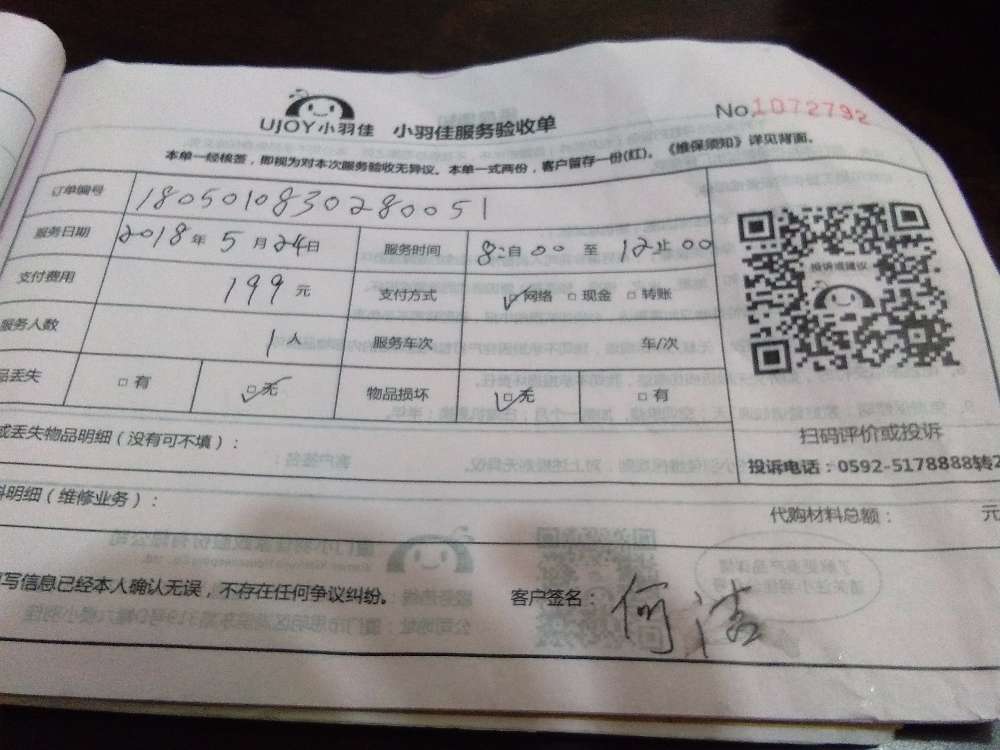 UJOY小羽佳 小羽佳服务验收单
No.1072792
本单一经核签，即视为对本次服务验收无异议。本单一式两份，客户留存一份(红)。《维保须知》详见背面。
订单编号 1805010830280051
服务日期 2018年5月24日 服务时间 8:自00至12止00
支付费用 199元 支付方式 ☑网络 □现金 □转账
服务人数 1人 服务车次 年/次
品丢失 □有 ☑无 物品损坏 ☑无 □有
投诉或建议
扫码评价或投诉
投诉电话：0592-5178888转2
或丢失物品明细（没有可不填）：
料明细（维修业务）：
代购材料总额： 元
写信息已经本人确认无误，不存在任何争议纠纷。
客户签名：何